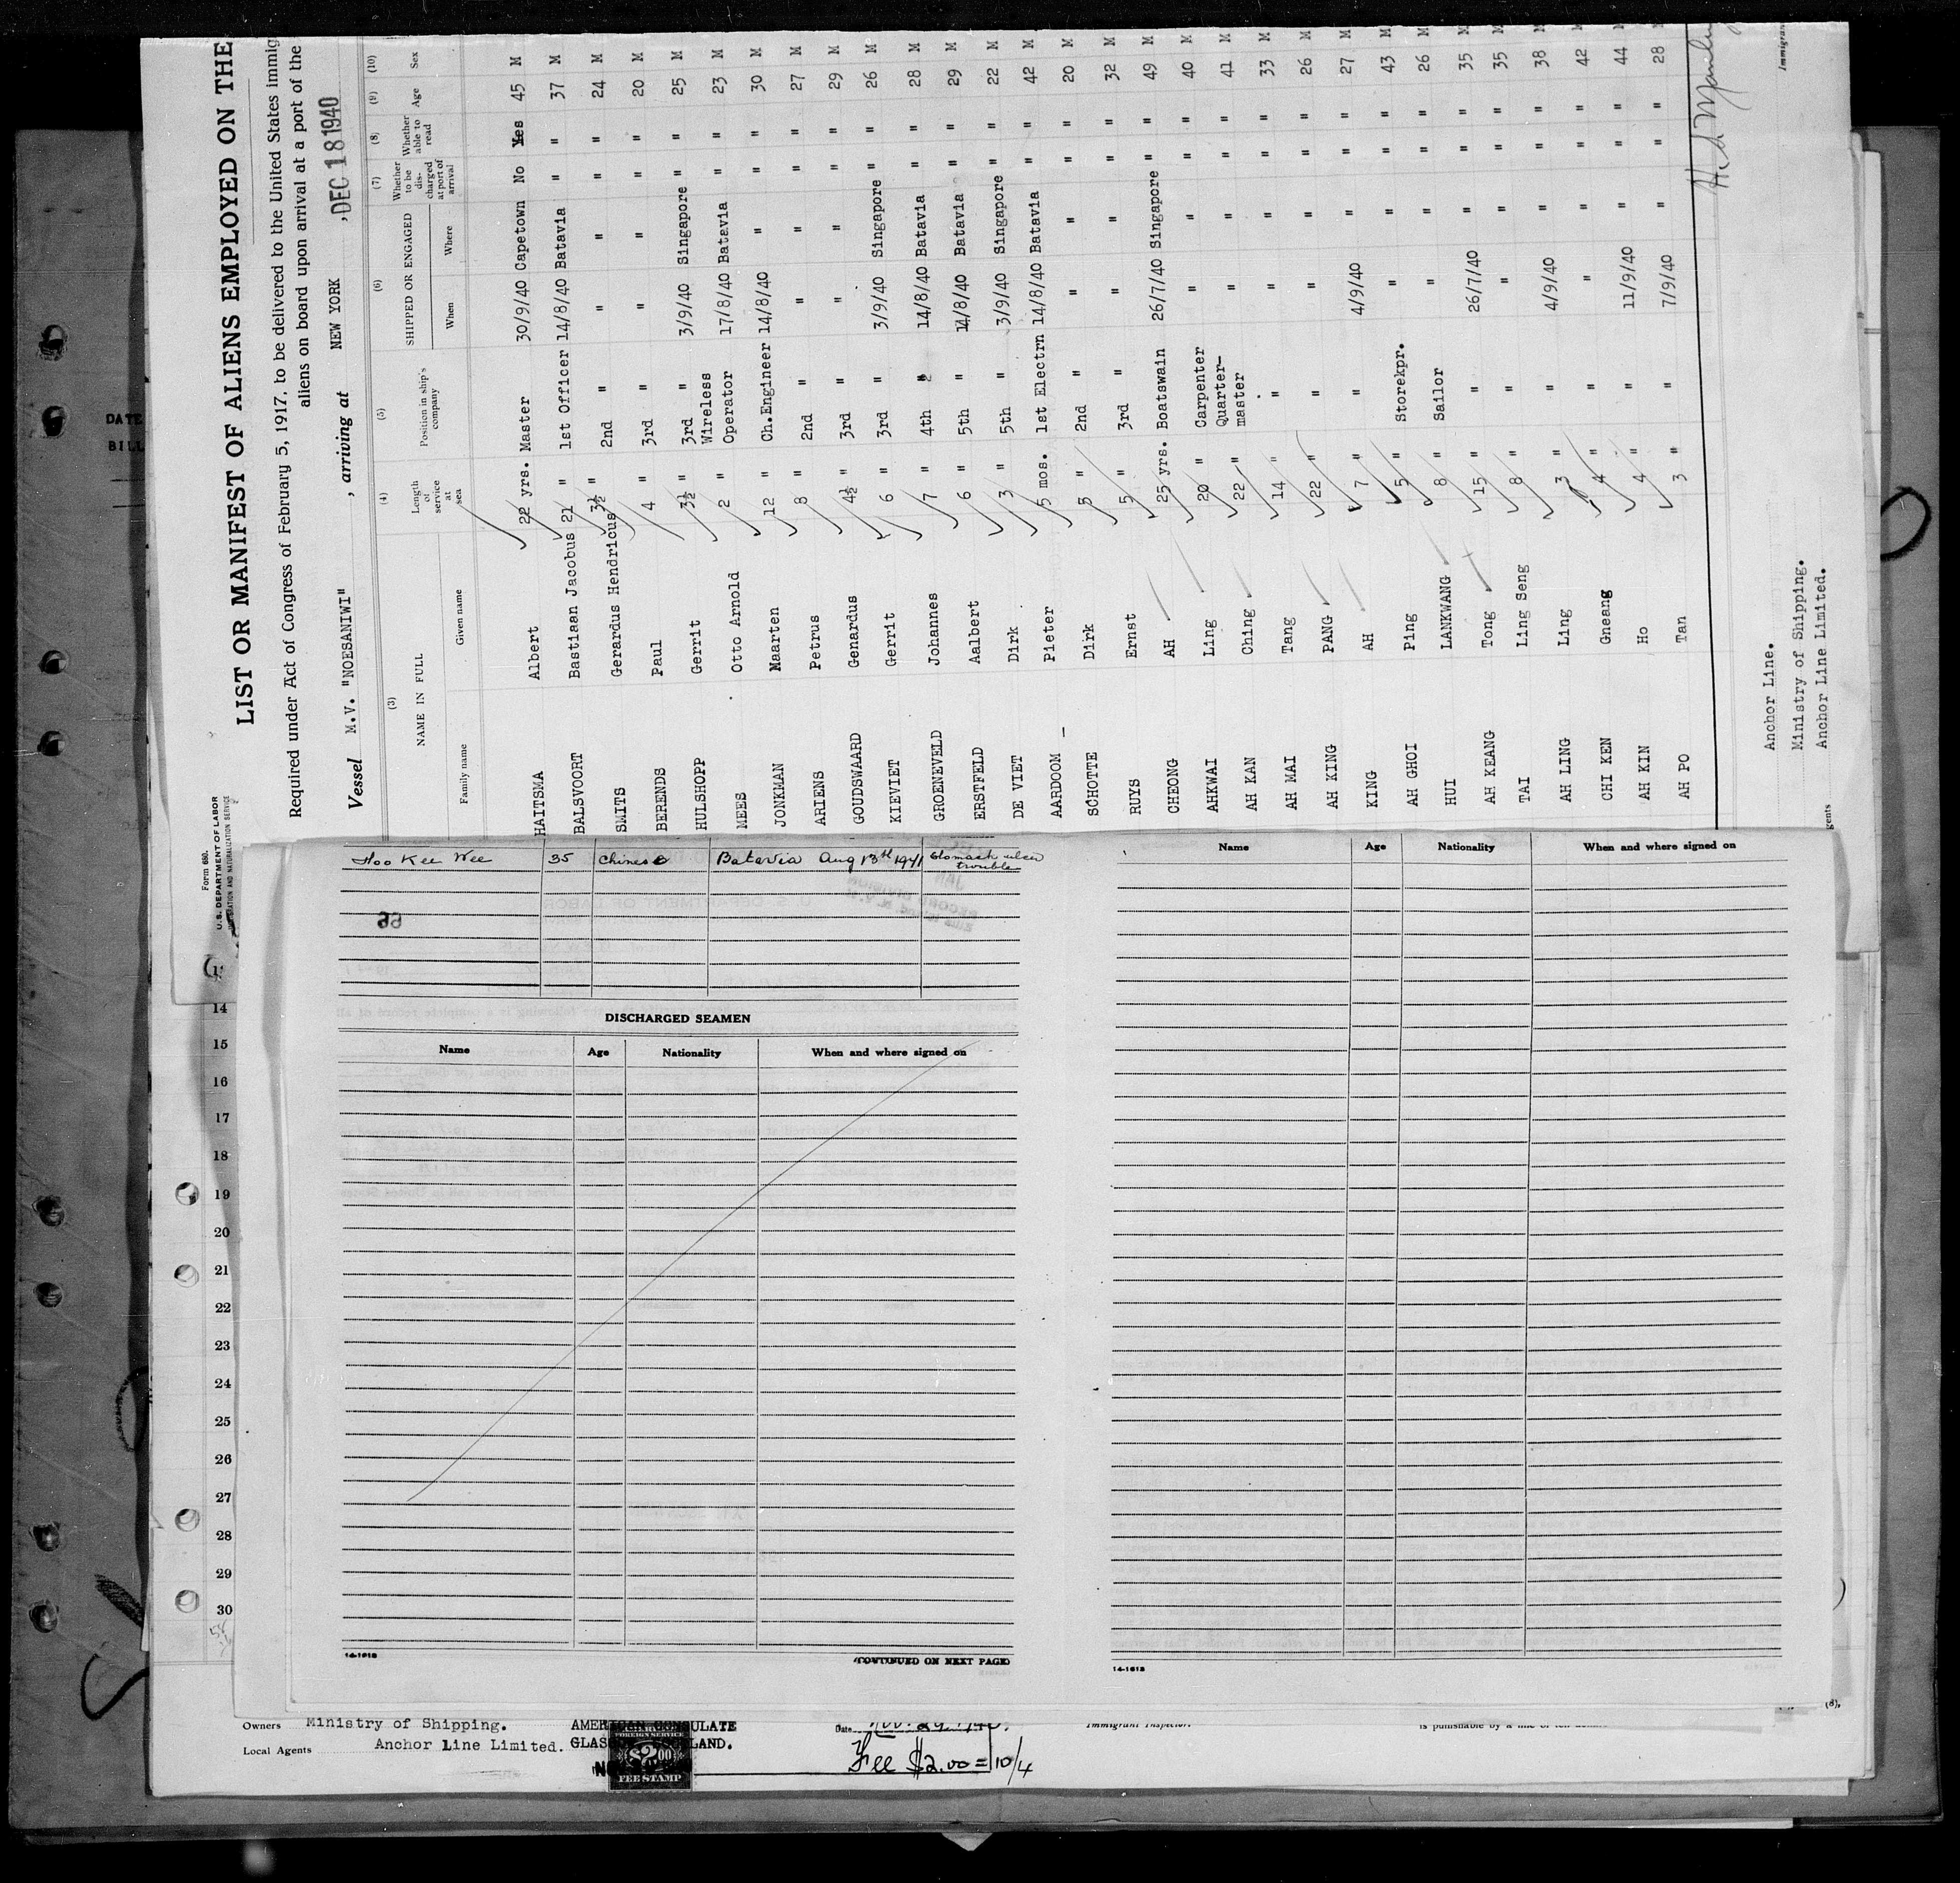 LIST OR MANIFEST OF ALIENS EMPLOYED ON THE
Required under Act of Congress of February 5, 1917, to be delivered to the United States immig
aliens on board upon arrival at a port of the
Vessel M.V. "NOESANIWI" , arriving at NEW YORK , DEC 18 1940
(3) (4) (5) (6) (7) (8) (9) (10)
NAME IN FULL
Family name Given name
Length of service at sea
Position in ship's company
SHIPPED OR ENGAGED
When Where
Whether to be discharged at port of arrival
Whether able to read
Age Sex
HAITSMA Albert 22 yrs. Master 30/9/40 Capetown No Yes 45 M
BALSVOORT Bastiaan Jacobus 21 " 1st Officer 14/8/40 Batavia " " 37 M
SMITS Gerardus Hendricus 3½ " 2nd " " " " " 24 M
BERENDS Paul 4 " 3rd " " " " " 20 M
HULSHOPP Gerrit 3½ " 3rd " 3/9/40 Singapore " " 25 M
MEES Otto Arnold 2 " Wireless Operator 17/8/40 Batavia " " 23 M
JONKMAN Maarten 12 " Ch.Engineer 14/8/40 " " " 30 M
ARIENS Petrus 8 " 2nd " " " " " 27 M
GOUDSWAARD Genardus 4½ " 3rd " " " " " 29 M
KIEVIET Gerrit 6 " 3rd " 3/9/40 Singapore " " 26 M
GROENEVELD Johannes 7 " 4th " 14/8/40 Batavia " " 28 M
ERSTFELD Aalbert 6 " 5th " 14/8/40 Batavia " " 29 M
DE VIET Dirk 3 " 5th " 3/9/40 Singapore " " 22 M
AARDOOM Pieter 5 mos. 1st Electrn 14/8/40 Batavia " " 42 M
SCHOTTE Dirk 5 " 2nd " " " " " 20 M
RUYS Ernst 5 " 3rd " " " " " 32 M
CHEONG AH 25 yrs. Boatswain 26/7/40 Singapore " " 49 M
AHKWAI Ling 20 " Carpenter " " " " 40 M
AH KAN Ching 22 " Quarter-master " " " " 41 M
AH MAI Tang 14 " " " " " " 33 M
AH KING PANG 22 " " " " " " 26 M
KING AH 7 " " 4/9/40 " " " 27 M
AH GHOI Ping 5 " Storekpr. " " " " 43 M
HUI LANKWANG 8 " Sailor " " " " 26 M
AH KEANG Tong 15 " " 26/7/40 " " " 35 M
TAI Ling Seng 8 " " " " " " 35 M
AH LING Ling 3 " " 4/9/40 " " " 38 M
CHI KEN Gneang 4 " " " " " " 42 M
AH KIN Ho 4 " " 11/9/40 " " " 44 M
AH PO Tan 3 " " 7/9/40 " " " 28 M
Anchor Line.
Ministry of Shipping.
Anchor Line Limited.
Immigran
gents
Form 680.
U.S. DEPARTMENT OF LABOR
IMMIGRATION AND NATURALIZATION SERVICE
DATE
BILL
Hoo Kee Wee 35 Chinese Batavia Aug 13th 1941 Stomach ulcer trouble
DISCHARGED SEAMEN
Name Age Nationality When and where signed on
14-1613
(CONTINUED ON NEXT PAGE)
Name Age Nationality When and where signed on
14-1613
14
15
16
17
18
19
20
21
22
23
24
25
26
27
28
29
30
Owners Ministry of Shipping.
Local Agents Anchor Line Limited.
AMERICAN CONSULATE
GLASGOW, SCOTLAND.
FOREIGN SERVICE
$2.00
FEE STAMP
Date
Fee $2.00 = 10/4
Immigrant Inspector.
(d).